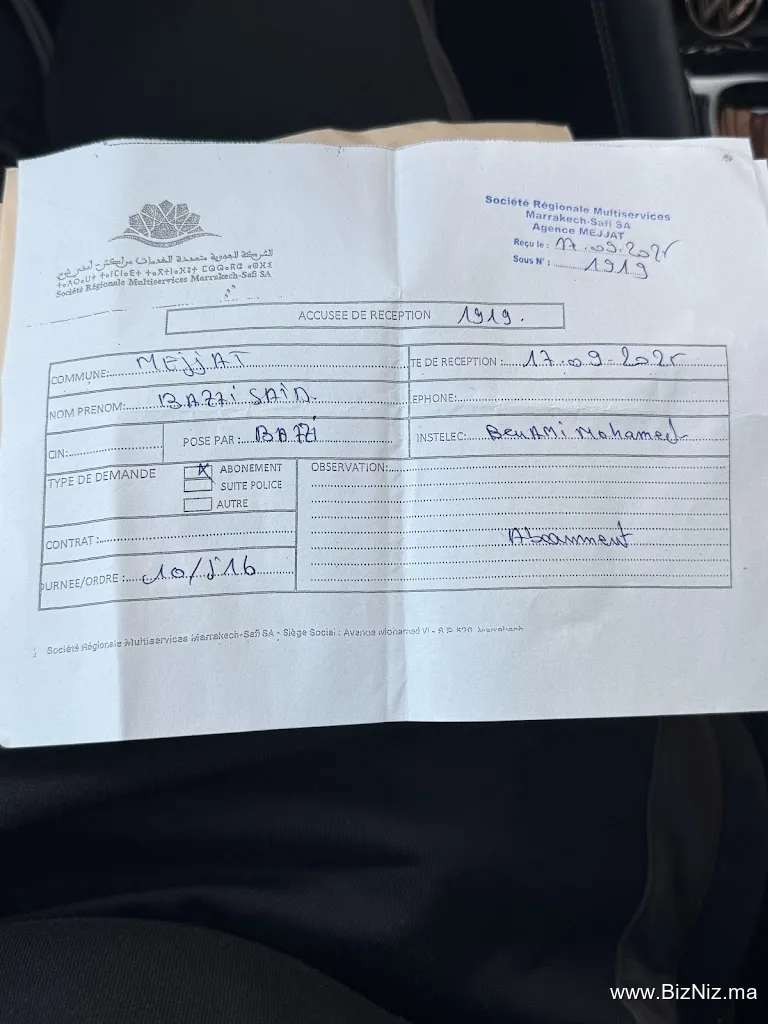 الشركة الجهوية متعددة الخدمات مراكش آسفي ش.م
Société Régionale Multiservices Marrakech-Safi SA
Société Régionale Multiservices
Marrakech-Safi SA
Agence MEJJAT
Reçu le : 17.09.2025
Sous N° : 1919
ACCUSEE DE RECEPTION 1919.
COMMUNE: MEJJAT
TE DE RECEPTION : 17.09-2025
NOM PRENOM: BAZZI SAID.
EPHONE:
CIN:
POSE PAR : BAZZi
INSTELEC:
Mohamed
TYPE DE DEMANDE
ABONEMENT
SUITE POLICE
AUTRE
OBSERVATION:
Abonnment
CONTRAT :
OURNEE/ORDRE : 10/J16
Société Régionale Multiservices Marrakech-Safi SA - Siège Social : Avenue Mohamed VI - B.P. 520 Marrakech
www.BizNiz.ma